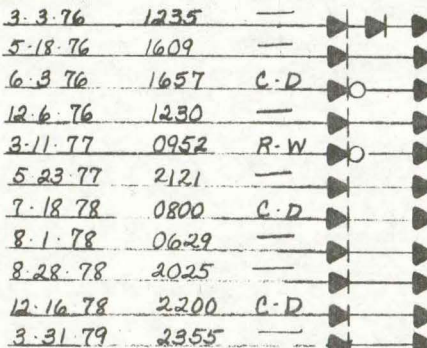 3-3-76 1235 —
5-18-76 1609 —
6-3-76 1657 C-D
12-6-76 1230 —
3-11-77 0952 R-W
5-23-77 2121 —
7-18-78 0800 C-D
8-1-78 0629 —
8-28-78 2025 —
12-16-78 2200 C-D
3-31-79 2355 —